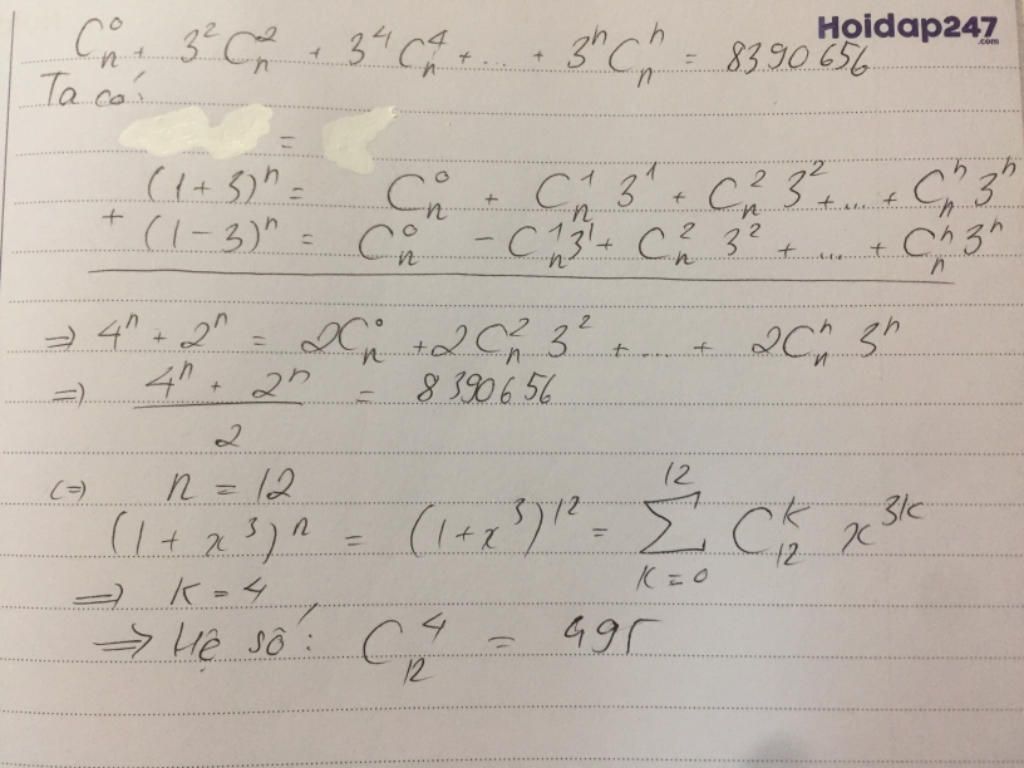 Hoidap247
.com
C_n^0 + 3^2 C_n^2 + 3^4 C_n^4 + ... + 3^n C_n^n = 8390656
Ta có:
=
(1+3)^n = C_n^0 + C_n^1 3^1 + C_n^2 3^2 + ... + C_n^n 3^n
+ (1-3)^n = C_n^0 - C_n^1 3^1 + C_n^2 3^2 + ... + C_n^n 3^n
=> 4^n + 2^n = 2C_n^0 + 2C_n^2 3^2 + ... + 2C_n^n 3^n
=> (4^n + 2^n)/2 = 8390656
(=) n = 12
(1+x^3)^n = (1+x^3)^12 = ∑_{K=0}^{12} C_12^K x^{3K}
=> K = 4
=> Hệ số: C_12^4 = 495